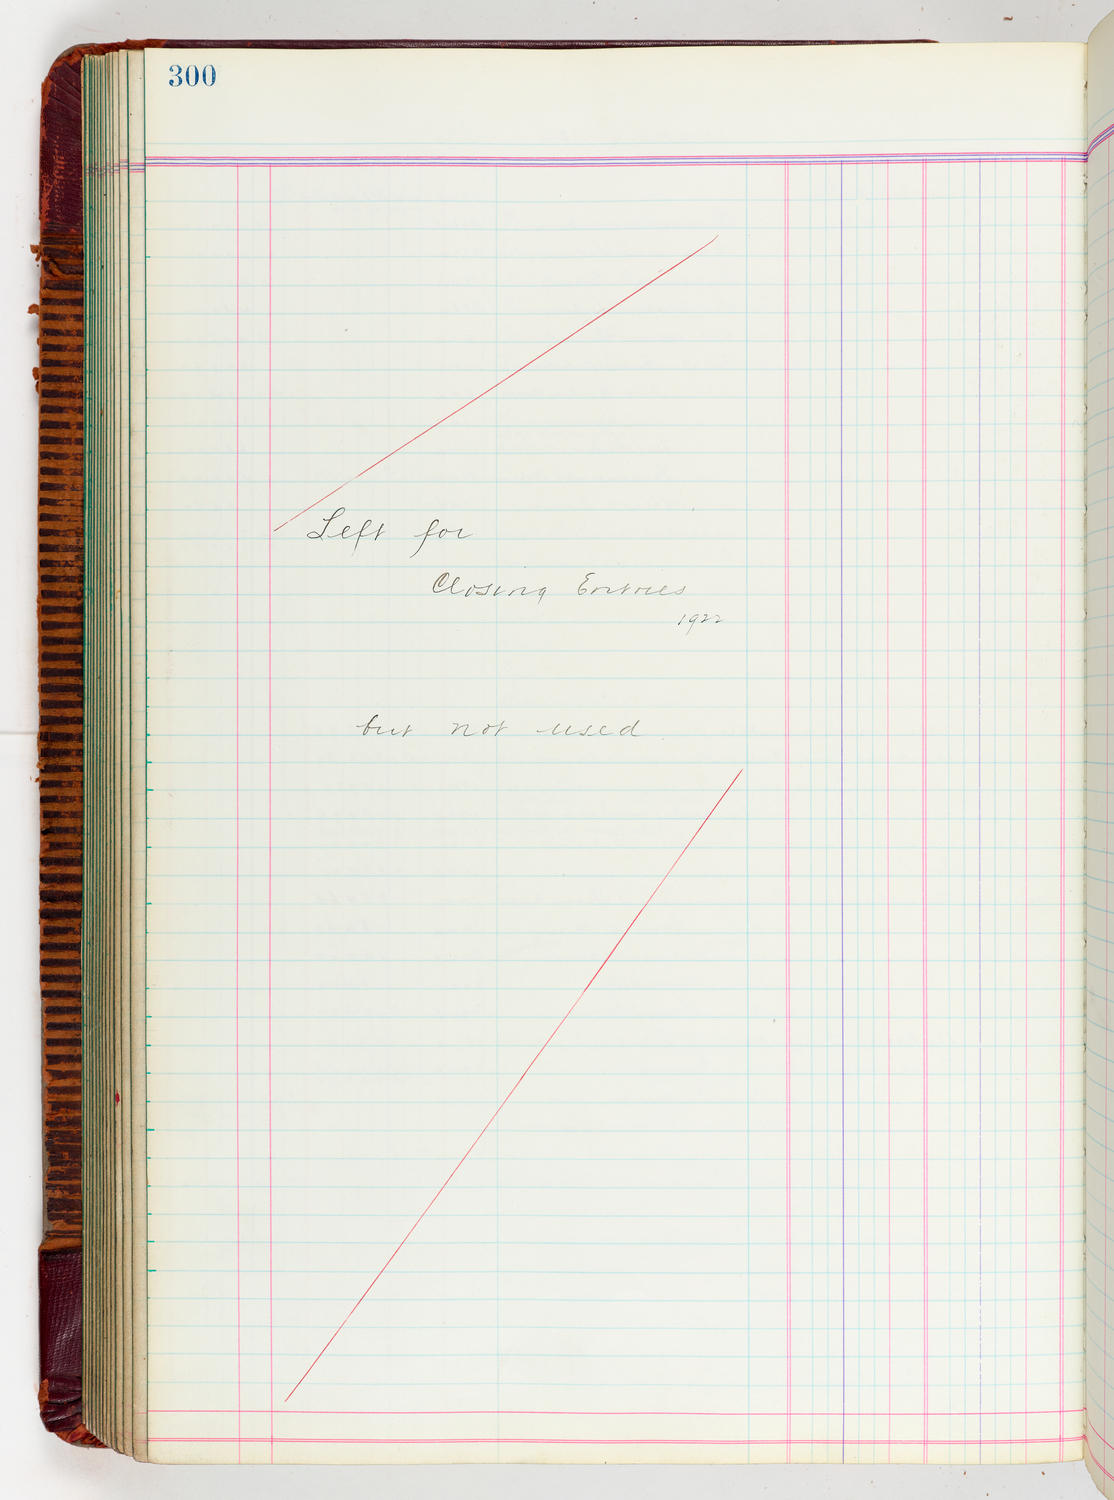 300
Left for
Closing Entries
1922
but not used